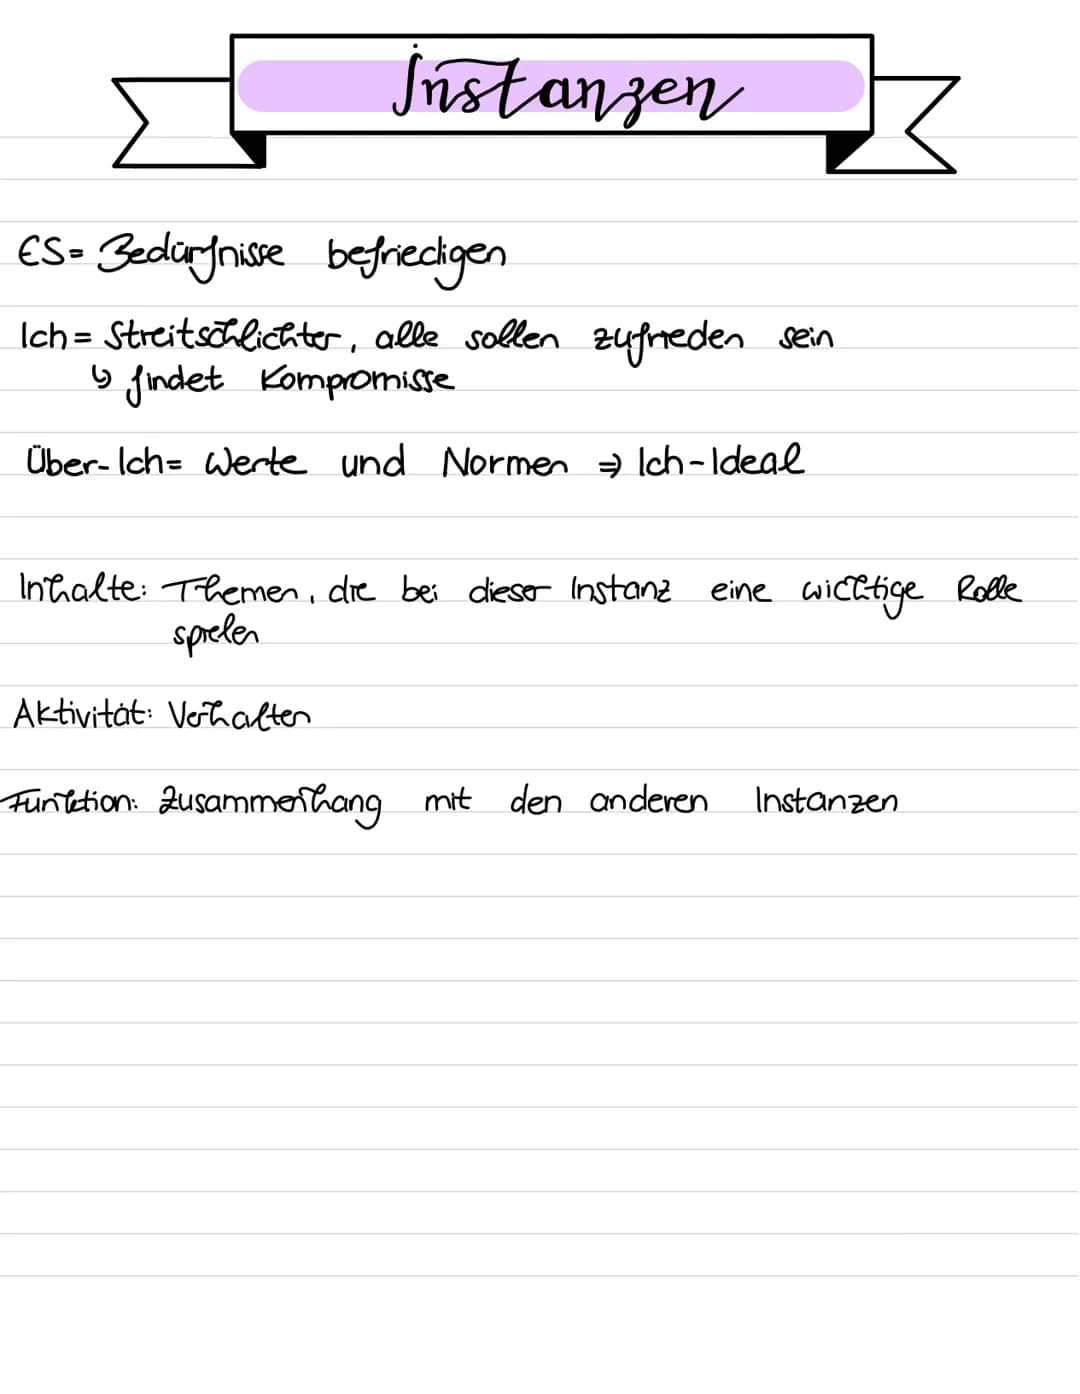 Instanzen
ES= Bedürfnisse befriedigen
Ich= Streitschlichter, alle sollen zufrieden sein
↳ findet Kompromisse
Über-Ich= Werte und Normen ⇒ Ich-Ideal
Inhalte: Themen, die bei dieser Instanz eine wichtige Rolle
spielen
Aktivität: Verhalten
Funktion: Zusammenhang mit den anderen Instanzen